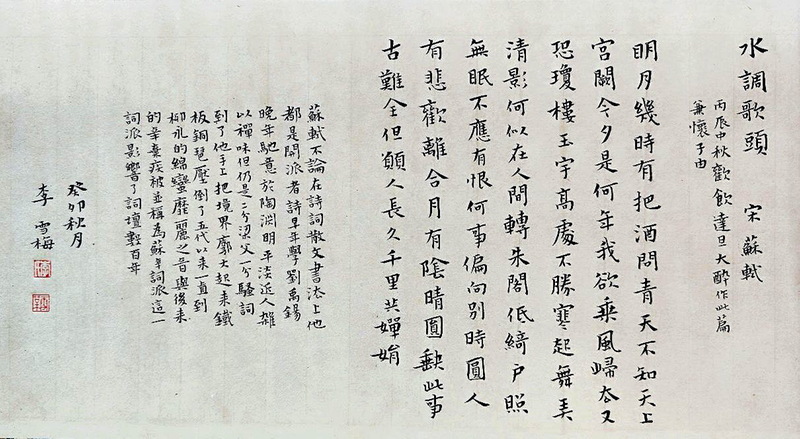 水調歌頭 宋 蘇軾
丙辰中秋歡飲達旦大醉作此篇
兼懷子由
明月幾時有把酒問青天不知天上
宮闕今夕是何年我欲乘風歸去又
恐瓊樓玉宇高處不勝寒起舞弄
清影何似在人間轉朱閣低綺戶照
無眠不應有恨何事偏向別時圓人
有悲歡離合月有陰晴圓缺此事
古難全但願人長久千里共嬋娟
蘇軾不論在詩詞散文書法上他
都是開派者詩早年學劉禹錫
晚年馳意於陶淵明平淡近人雜
以禪味但仍是二分梁父一分騷詞
到了他手上把境界廓大起來鐵
板銅琶壓倒了五代以來一直到
柳永的綿蠻靡麗之音與後來
的辛棄疾被並稱為蘇辛詞派這一
詞派影響了詞壇數百年
癸卯秋月
李雪梅